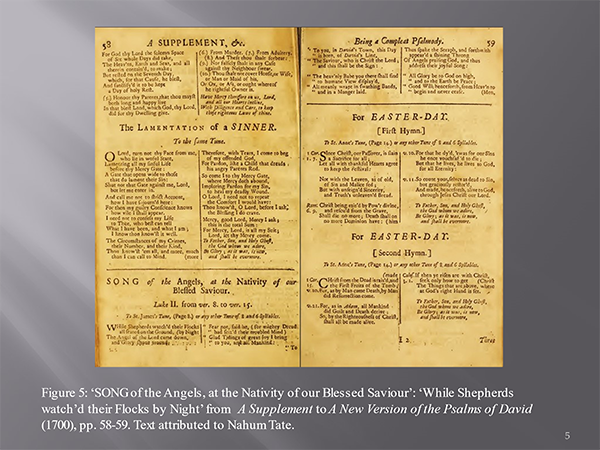 58
A SUPPLEMENT, &c.
For God thy Lord the silemn Space
of six whole Days did take,
The Heav'ns, Earth and Seas, and all
therein contein'd, to make:
But rested on the Seventh Day
which, for that Cause, he blest,
And sanctify'd it to be kept
a Day of holy Rest.
both long and happy live
In that blest Land, which God, thy Lord,
did for thy Dwelling give.
(6.) From Murder. (7.) From Adultery.
(8.) And Theft thou shalt forbear:
(9.) Nor falsely shalt in any Case
against thy Neighbour swear.
(10.) Thou shalt not covet House, or Wife,
or Man or Maid of his,
Or Ox, or Ass, or ought whereof
he rightful Owner is.
Have Mercy therefore on us, Lord,
and all our Hearts incline,
With Grace, to keep
these righteous Laws of thine.
The LAMENTATION of a SINNER.
To the same Tune.
O Lord, turn not thy Face from me,
who lie in woful State,
Lamenting all my sinful Life
before thy Mercy Gate:
A Gate that opens wide to those
that do lament their Sin:
Shut not that Gate against me, Lord,
but let me enter in.
And call me not to strict Account,
how I have sojourn'd here:
For then my guilty Conscience knows
how vile I shall appear.
I need not to confess my Life
to Thee, who best can tell
What I have been, and what I am;
I know thou know'st it well.
The Circumstances of my Crimes,
their Number, and their Kind,
Thou know'st 'em all, and more, much
thou I can call to Mind. (more
Therefore, with Tears, I come to beg
of my offended God,
For Pardon, like a Child that dreads
his angry Parents Rod.
So come I to thy Mercy Gate,
where Mercy doth abound,
Imploring Pardon for my Sin,
to heal my deadly Wound.
O Lord, I need not to repeat
the Comfort I would have:
Thou know'st, O Lord, before I ask,
the Blessing I do crave.
Mercy, good Lord, Mercy I ask;
this is the total Sum:
For Mercy, Lord, is all my Suit;
Lord, let thy Mercy come.
To Father, Son, and Holy Ghost,
the God whom we adore,
Be Glory; as it was, is now,
and shall be evermore.
SONG of the Angels, at the Nativity of our
Blessed Saviour.
Luke II. from ver. 8. to ver. 15.
To St. James's Tune, (Page 8.) or any other Tune of 8 and 6 Syllables.
While Shepherds watch'd their Flocks
by Night
The Angel of the Lord came down,
and Glory shone around.
" Fear not, said he, (for mighty Dread
had seiz'd their troubled Mind)
" Glad Tidings of great Joy I bring
" to you, and all Mankind.
" To
Being a Compleat Psalmody.
59
" To you, in David's Town, this Day
" is born, of David's Line,
" The Saviour, who is Christ the Lord;
" and this shall be the Sign:
" The heav'nly Babe you there shall find
" to human View display'd,
" All meanly wrapt in swathing Bands,
" and in a Manger laid.
Thus spake the Seraph, and forthwith
appear'd a shining Throng
Of Angels praising God, and thus
address'd their joyful Song:
" All Glory be to God on high,
" and to the Earth be Peace;
" Good Will, henceforth, from Heav'n to
" begin and never cease. (Men,
For EASTER-DAY.
[First Hymn.]
To St. Anne's Tune, (Page 14.) or any other Tune of 8 and 6 Syllables.
a Sacrifice for all;
Let all with thankful Hearts agree
to keep the Festival:
Not with the Leaven, as of old,
of Sin and Malice fed;
But with unfeign'd Sincerity,
and Truth's unleaven'd Bread.
Rom. Christ being rais'd by Pow'r divine,
6. 9. and rescu'd from the Grave,
Shall die no more; Death shall on
no more Dominion have: (him
v. 10. For that he dy'd, 'twas for our Sins
he once vouchsaf'd to die;
But that he lives, he lives to God,
for all Eternity:
v. 11. So count your selves as dead to Sin,
but graciously restor'd,
And made, henceforth, alive to God,
through Jesus Christ our Lord.
To Father, Son, and Holy Ghost,
the God whom we adore,
Be Glory; as it was, is now,
and shall be evermore.
For EASTER-DAY.
[Second Hymn.]
To St. Anne's Tune, (Page 14.) or any other Tune of 8 and 6 Syllables.
(made
Christ from the Dead is rais'd, and
the First Fruits of the Tomb;
v. 21. For, as by Man came Death, by Man
did Resurrection come.
v. 22. For, as in Adam, all Mankind
did Guilt and Death derive;
So, by the Righteousness of Christ,
shall all be made alive.
If then ye risen are with Christ,
seek only how to get
The Things that are above, where
at God's right Hand is set.
To Father, Son, and Holy Ghost,
the God whom we adore,
Be Glory; as it was, is now,
and shall be evermore.
I 2
Figure 5: ‘SONG of the Angels, at the Nativity of our Blessed Saviour’: ‘While Shepherds
watch’d their Flocks by Night’ from A Supplement to A New Version of the Psalms of David
(1700), pp. 58-59. Text attributed to Nahum Tate.
5